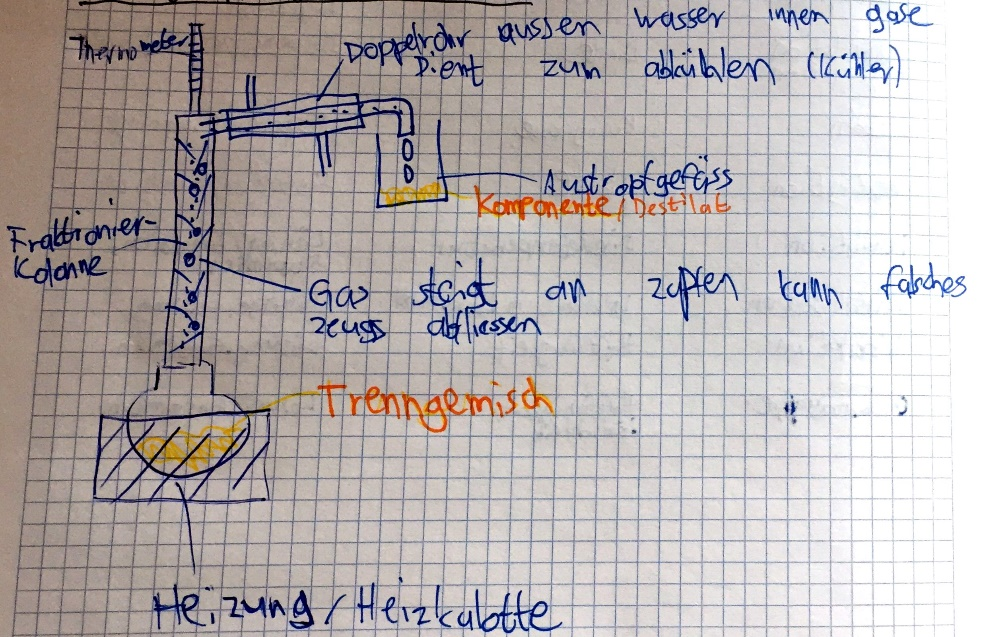 Thermometer
Doppelrohr aussen wasser innen gase
Dient zum abkühlen (Kühler)
Austropfgefäss
Komponente / Destilat
Fraktionier-
Kolonne
Gas steigt an zapfen kann falsches
zeugs abfliessen
Trenngemisch
Heizung / Heizkalotte